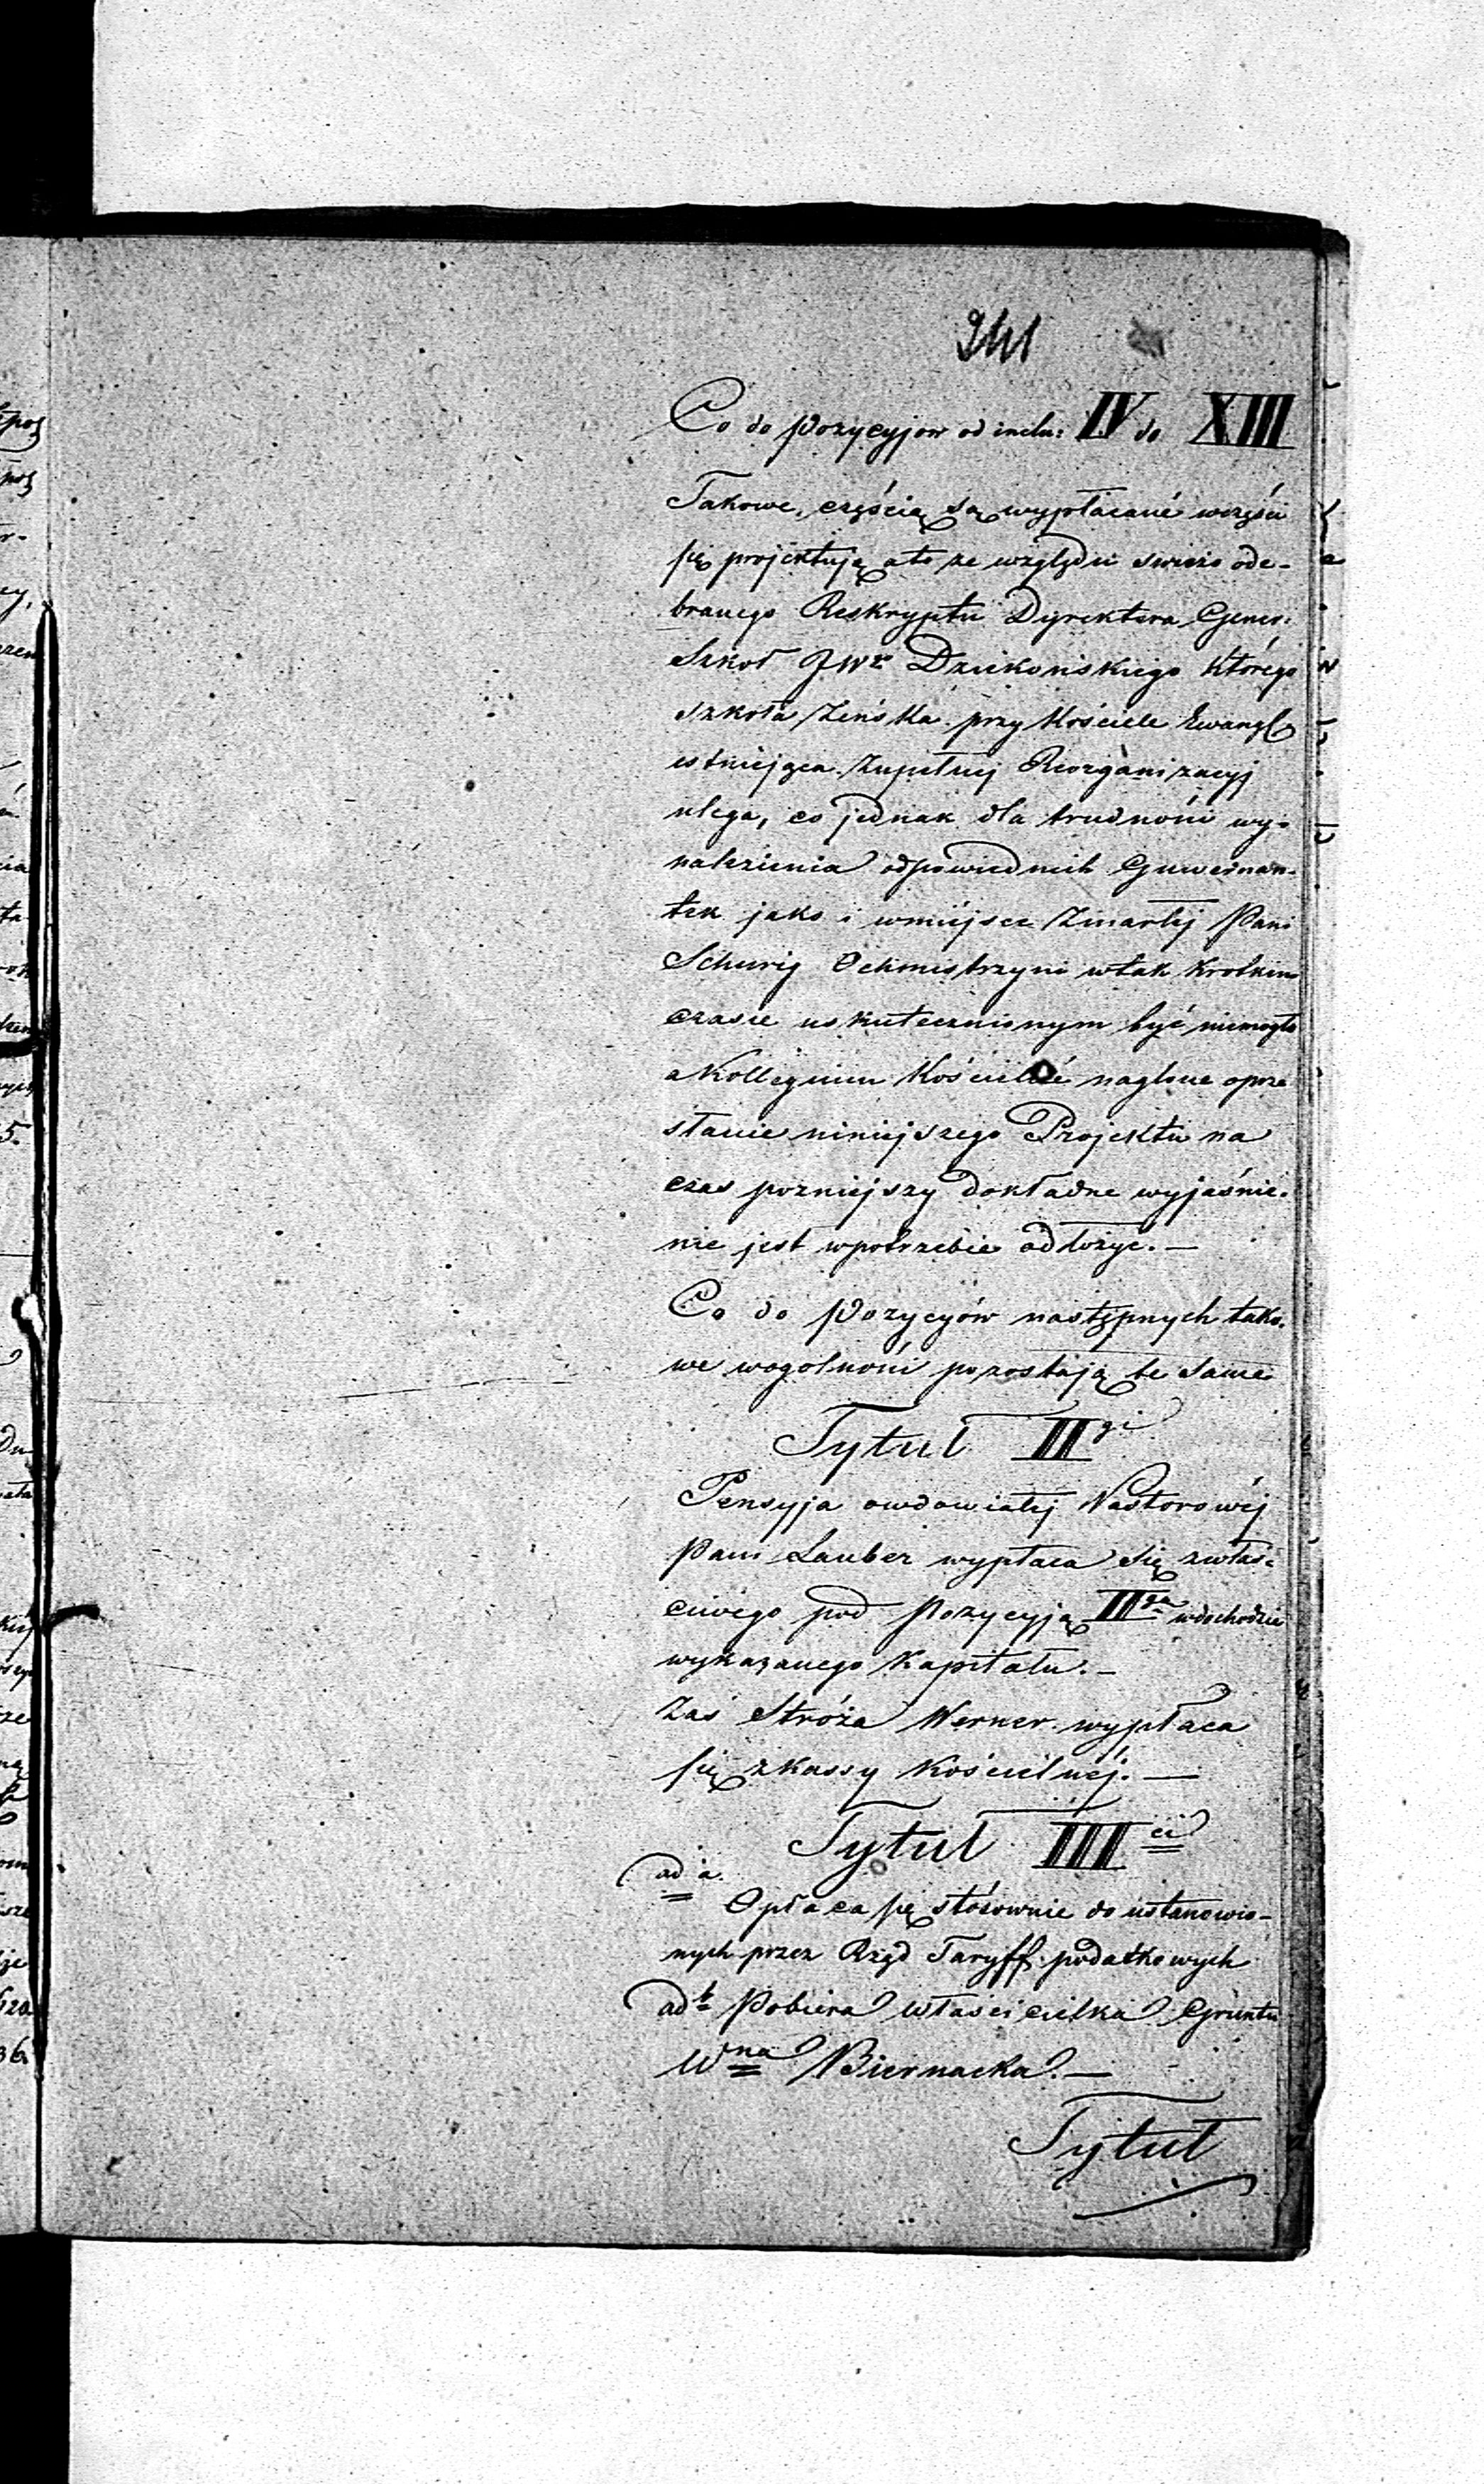 241
Co do Pozycyjow od inclu: IV do XIII
Takowe, częścią są wypłacané wczęści
się projektują ato ze względu swieżo ode-
branego Reskryptu Dyrektora Gener:
Szkoł JWo Dziekońskiego którego
szkoła Żeńska przy Kościele Ewangl
istniejąca Zupełnej Reorganizacyj
ulega, co jednak dla trudności wy-
nalezienia odpowiednich Guwernan-
tek jako i wmiejsce Zmarłej Pani
Schurig Ochmistrzyni wtak krotkim
czasie uskutecznionym być niemogło
a Kollegium Kościelné naglone
stanie niniejszego Projektu na
czas pozniejszy dokładne wyjaśnie-
nie jest wpotrzebie odłożyc. —
Co do Pozycyów następnych tako-
we wogólności pozostają te same
Tytuł II gi
Pensyja owdowiałej Pastorowéj
Pani Lauber wypłaca się zwłaś-
ciwego pod Pozycyją II gą wdochodzie
wykazanego Kapitału. —
Zaś Stróża Werner wypłaca
się zkassy Kościelnéj. —
Tytuł III ci
ad a.
Opłaca się stósownie do ustanowio-
nych przez Rząd Taryff podatkowych
ad b Pobiera właścicielka Gruntu
Wna Biernacka. —
Tytuł